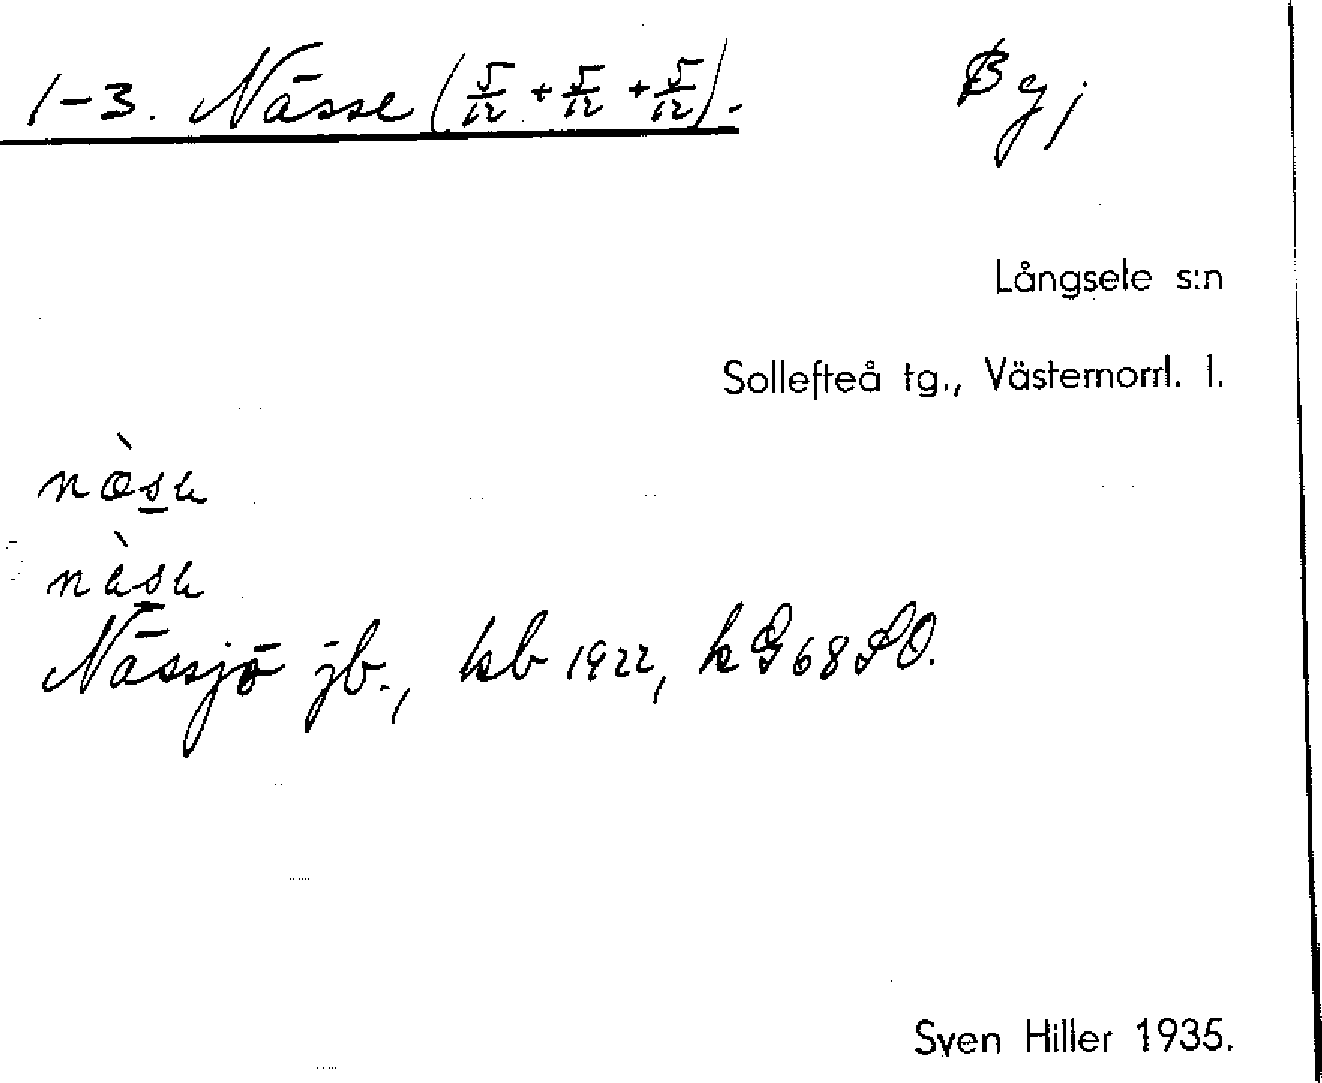 1-3. Nässe (5/12 + 5/12 + 5/12). By;
Långsele s:n
Sollefteå tg., Västernorrl. l.
næ̀s̲ɩ
nès̲ɩ
Nässjö jb., kb 1922, kG 68 SO.
Sven Hiller 1935.